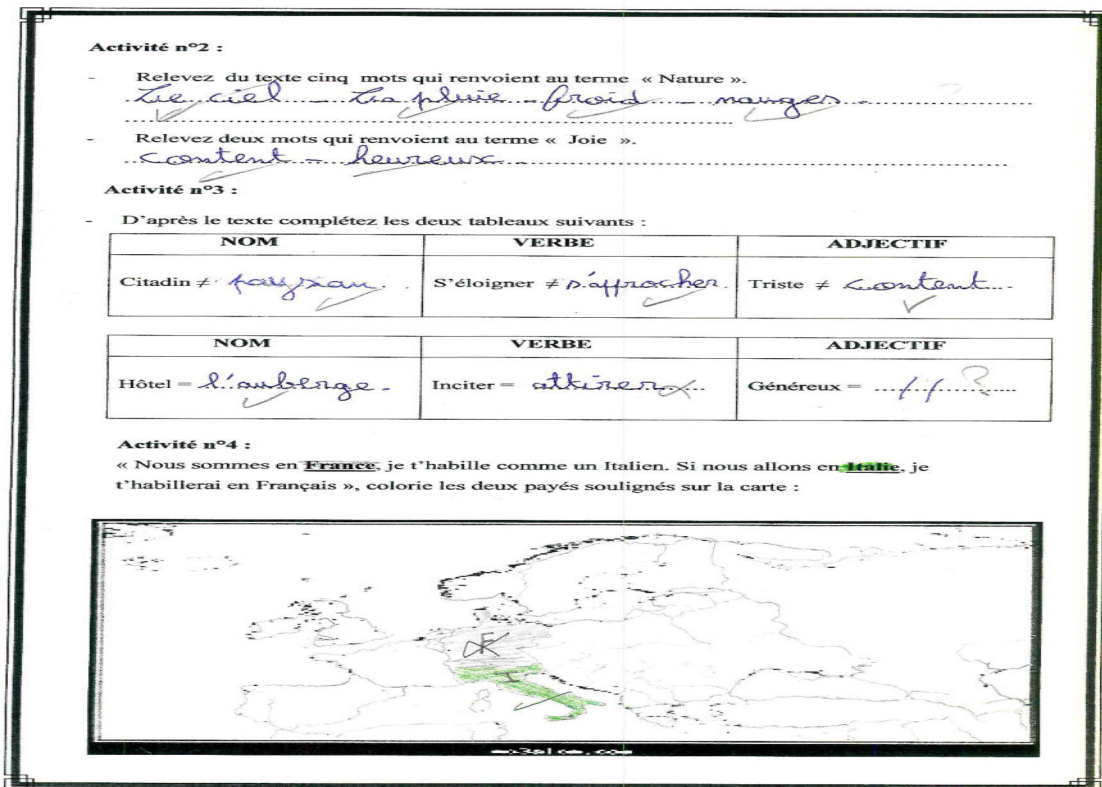 Activité n°2 :
- Relevez du texte cinq mots qui renvoient au terme « Nature ».
Le ciel - La pluie - froid - nauges -
- Relevez deux mots qui renvoient au terme « Joie ».
content - heureux -
Activité n°3 :
- D'après le texte complétez les deux tableaux suivants :
NOM VERBE ADJECTIF
Citadin ≠ paysan. S'éloigner ≠ s'approcher. Triste ≠ content
NOM VERBE ADJECTIF
Hôtel = l'auberge. Inciter = attirer Généreux = // ?
Activité n°4 :
« Nous sommes en France, je t'habille comme un Italien. Si nous allons en Italie, je
t'habillerai en Français », colorie les deux payés soulignés sur la carte :
F
I